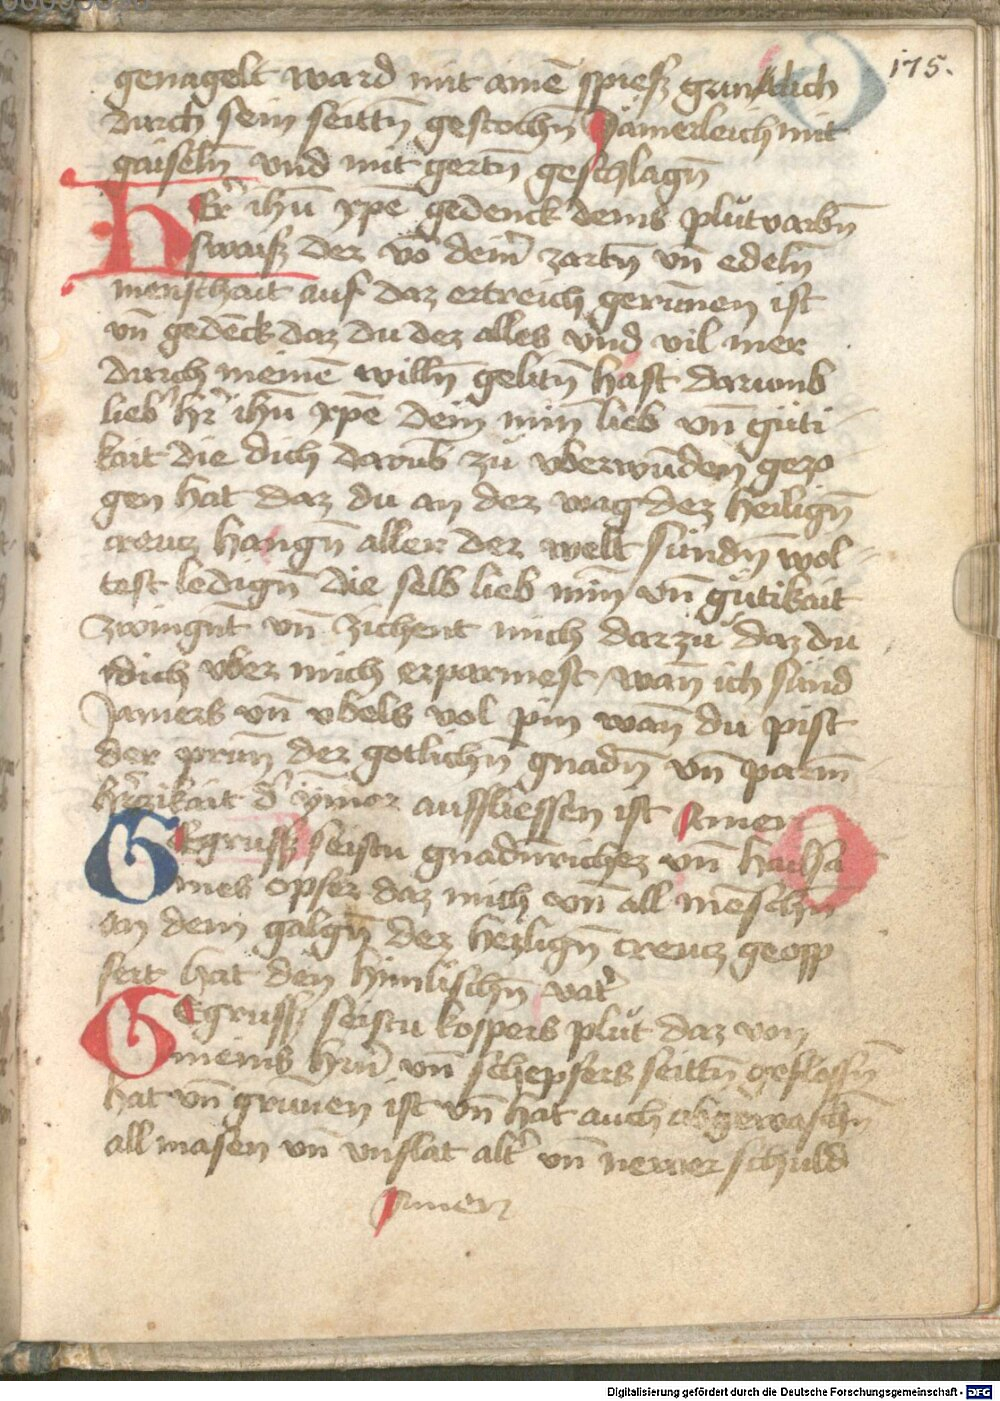 175.
genagelt ward mit ainē spieſz grimklich
durch sein seittn̄ gestochn̄ Jämerleich mit
gaiseln̄ vnd mit gertn̄ geschlagn̄
HEr̄ ihū xp̄e gedenck deins plůtvarbn̄
swaisz der vō dein̄ zartn̄ vn̄ edeln̄
menschait auf daz ertreich gerunnen ist
vn̄ gedēck daz du dez alles vnd vil mer
durch meinē willn̄ gelitn̄ hast darumb
lieb' hr̄ ihū xp̄e dein min̄ lieb vn̄ güti
kait die dich darūb zů vberwūden gezo
gen hat daz du an der wag dez heilign̄
creutz hangn̄ aller der welt sündn̄ wol
test ledign̄ die selb lieb min̄ vn̄ gütikait
zwingnt vn̄ zichent mich darzů daz du
dich vber mich erparmest wan̄ ich sünd
Jamers vn̄ vbels vol pin wan̄ du pist
der prun̄ der gotlichn̄ gnadn̄ vn̄ parm̄
hr̄zikait d' ym̄er ausfliessen ist Amen
GEgrusszt seistu gnadnrichez vn̄ hailsa
mes opfer daz mich vn̄ all mēschn̄
an dem galgn̄ dez heylign̄ creutz geopp
fert hat den himlischn̄ vat'
GEgrussz seistu kospers plůt daz von
meins hrn̄ vn̄ schepfers seittn̄ geflossn̄
hat vn̄ grunnen ist vn̄ hat auch abgewaschn̄
all masen vn̄ vnflat alt' vn̄ newer schuld
Amen
Digitalisierung gefördert durch die Deutsche Forschungsgemeinschaft - DFG